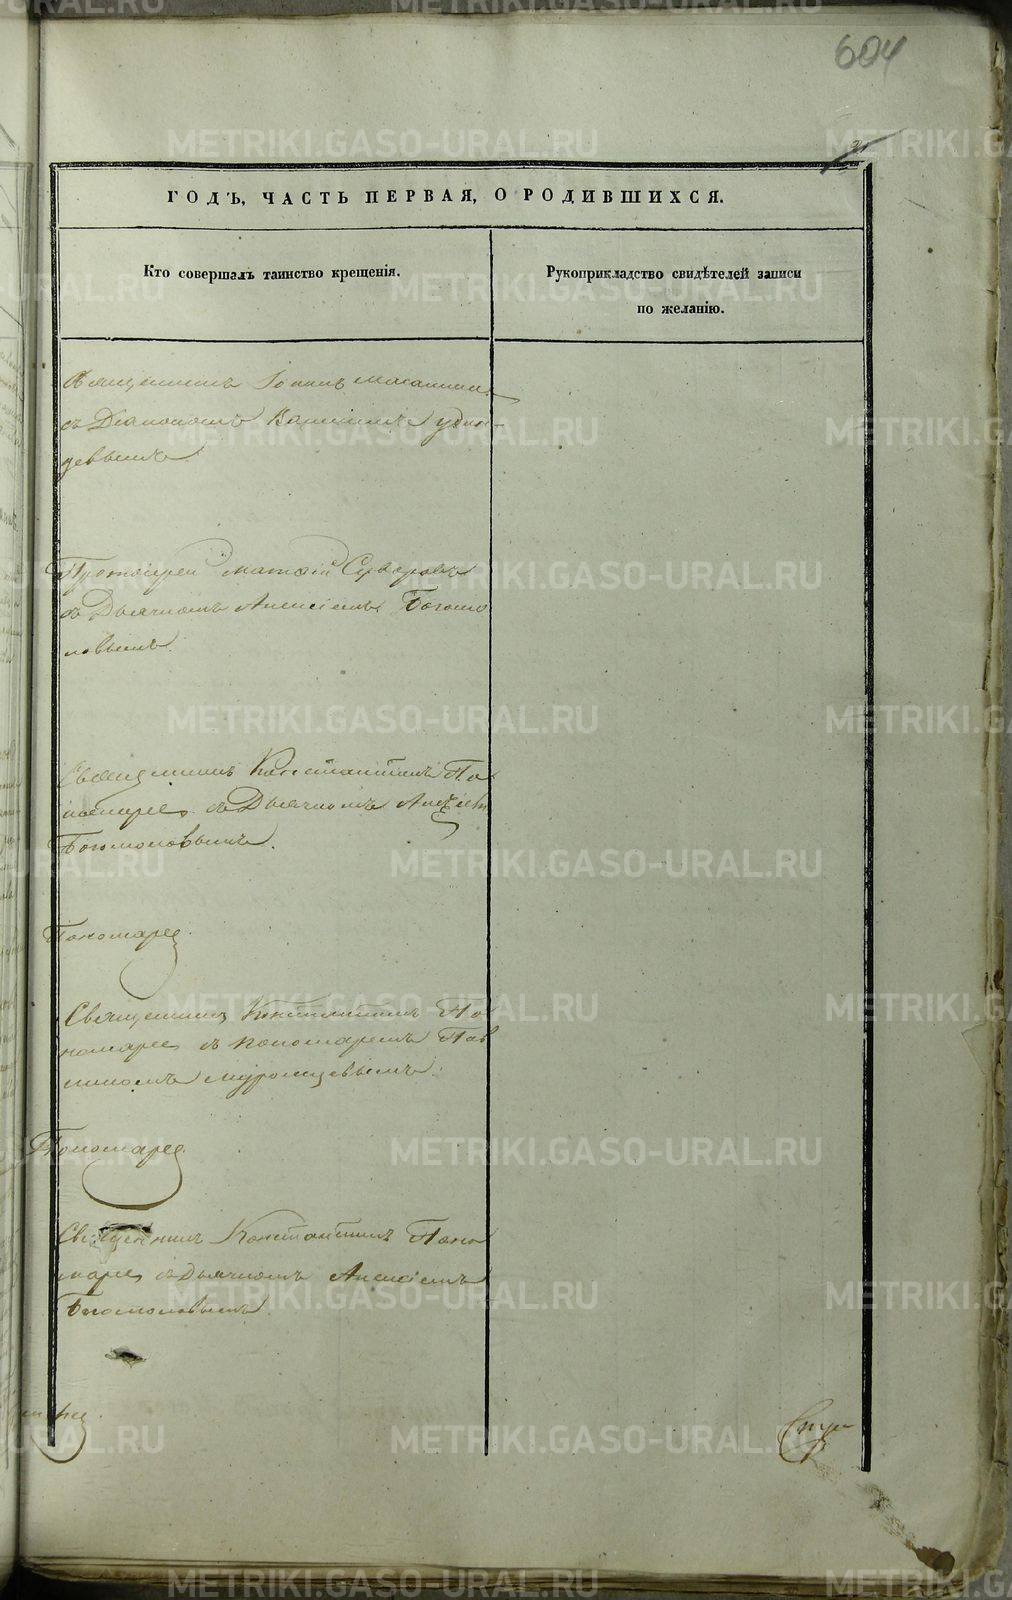 604
ГОДЪ, ЧАСТЬ ПЕРВАЯ, О РОДИВШИХСЯ.
Кто совершалъ таинство крещенія.
Рукоприкладство свидѣтелей записи
по желанію.
Священникъ Іоаннъ
съ Діакономъ
Протоіерей Матѳій
съ Дьячкомъ Алексіемъ Богомо
ловымъ.
Священникъ Константинъ По
номарев съ Дьячкомъ Алексіем
Богомоловымъ.
Пономарев
Священникъ Константинъ По
номарев съ Пономаремъ Пав
линомъ Муромцевымъ.
Пономарев
Священникъ Константинъ Поно
марев съ Дьячкомъ Алексіемъ
Богомоловымъ.
METRIKI.GASO-URAL.RU